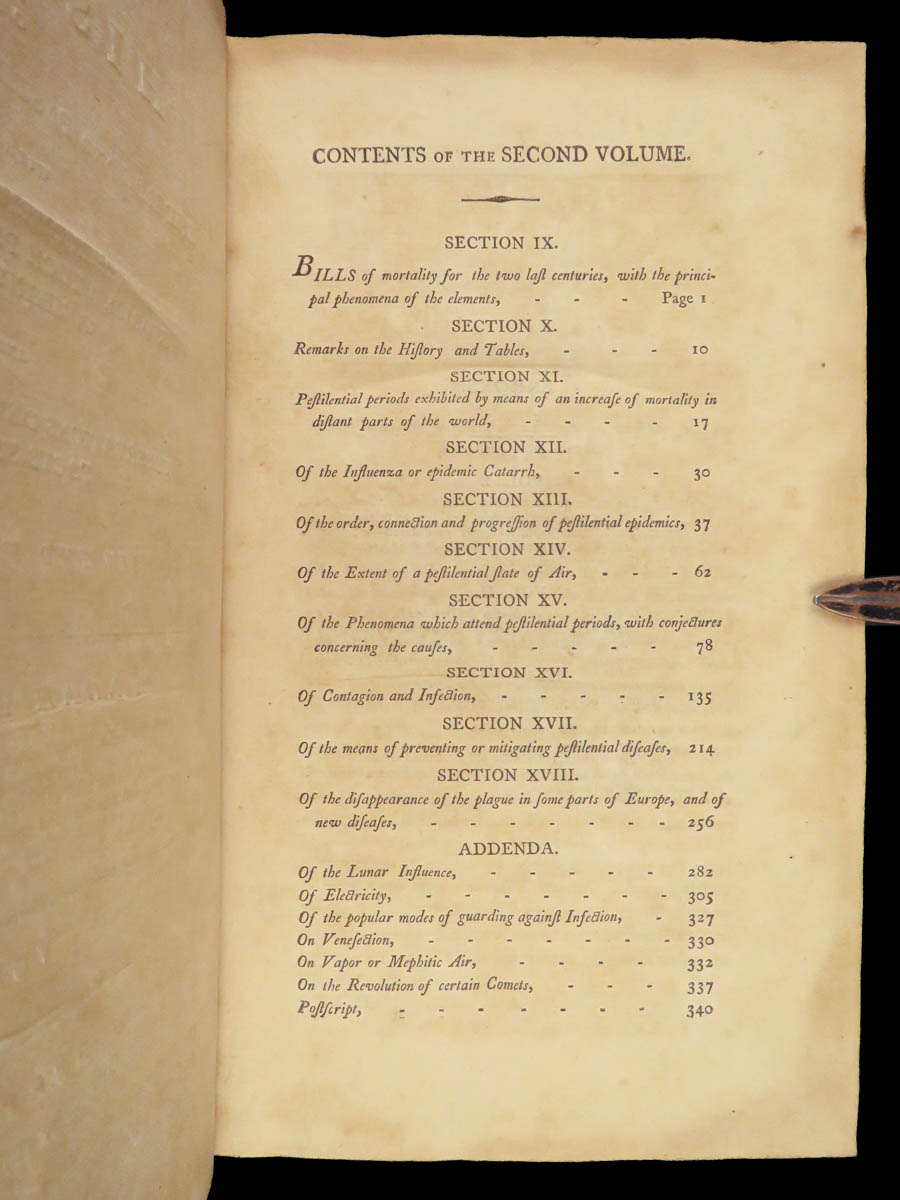 CONTENTS OF THE SECOND VOLUME.
SECTION IX.
BILLS of mortality for the two laſt centuries, with the princi-
pal phenomena of the elements, - - - Page 1
SECTION X.
Remarks on the Hiſtory and Tables, - - - 10
SECTION XI.
Peſtilential periods exhibited by means of an increaſe of mortality in
diſtant parts of the world, - - - - 17
SECTION XII.
Of the Influenza or epidemic Catarrh, - - - 30
SECTION XIII.
Of the order, connection and progreſſion of peſtilential epidemics, 37
SECTION XIV.
Of the Extent of a peſtilential ſtate of Air, - - - 62
SECTION XV.
Of the Phenomena which attend peſtilential periods, with conjectures
concerning the cauſes, - - - - - 78
SECTION XVI.
Of Contagion and Infection, - - - - - 135
SECTION XVII.
Of the means of preventing or mitigating peſtilential diſeaſes, 214
SECTION XVIII.
Of the diſappearance of the plague in ſome parts of Europe, and of
new diſeaſes, - - - - - - - 256
ADDENDA.
Of the Lunar Influence, - - - - - 282
Of Electricity, - - - - - - - 305
Of the popular modes of guarding againſt Infection, - 327
On Veneſection, - - - - - - - 330
On Vapor or Mephitic Air, - - - - 332
On the Revolution of certain Comets, - - - 337
Poſtſcript, - - - - - - - 340